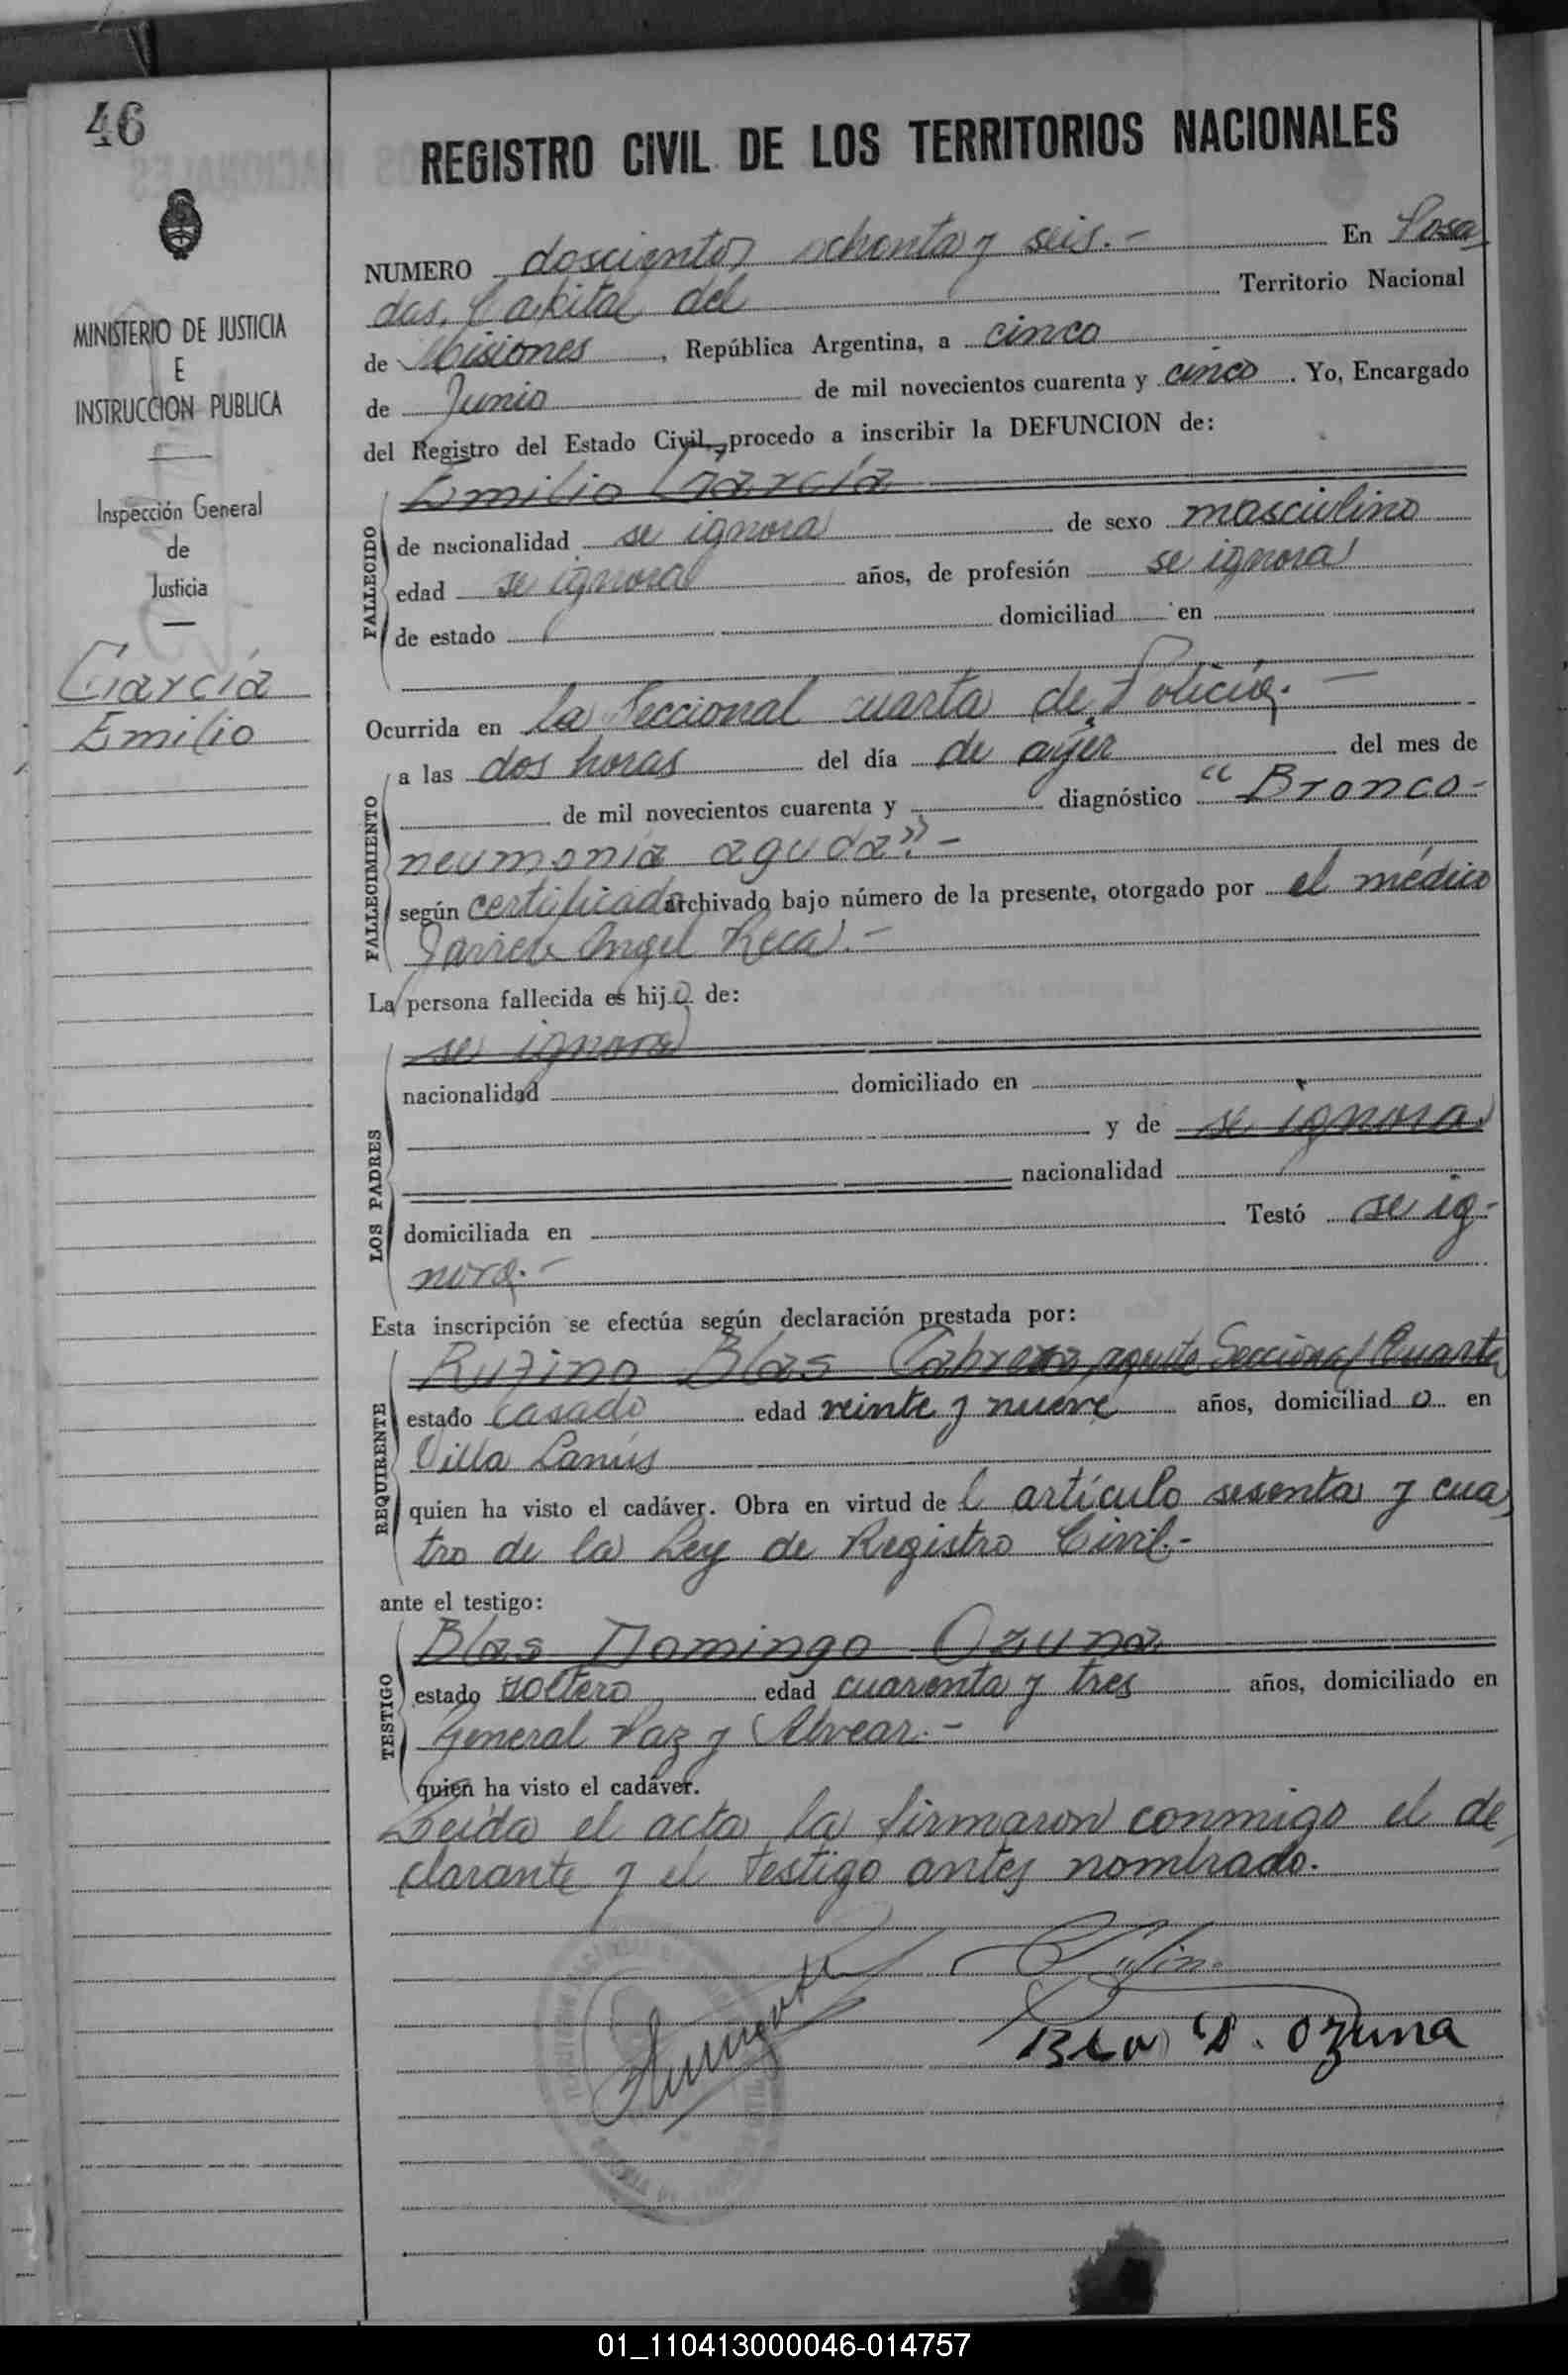 46
MINISTERIO DE JUSTICIA
E
INSTRUCCION PUBLICA
Inspección General
de
Justicia
García
Emilio
REGISTRO CIVIL DE LOS TERRITORIOS NACIONALES
NUMERO doscientos ochenta y seis.- En Posa
das, Capital del Territorio Nacional
de Misiones, República Argentina, a cinco
de Junio de mil novecientos cuarenta y cinco. Yo, Encargado
del Registro del Estado Civil, procedo a inscribir la DEFUNCION de:
FALLECIDO
Emilio García
de nacionalidad se ignora de sexo masculino
edad se ignora años, de profesión se ignora
de estado domiciliad en
Ocurrida en la Seccional cuarta de Policía.-
FALLECIMIENTO
a las dos horas del día de ayer del mes de
de mil novecientos cuarenta y diagnóstico "Bronco-
neumonía aguda".-
según certificado archivado bajo número de la presente, otorgado por el médico
Angel Reca.-
La persona fallecida es hijo de:
LOS PADRES
se ignora
nacionalidad domiciliado en
y de se ignora
nacionalidad
domiciliada en Testó se ig-
nora.-
Esta inscripción se efectúa según declaración prestada por:
REQUIRENTE
Rufino Blas Cabrera, agente Seccional Cuarta
estado casado edad veinte y nueve años, domiciliado en
Villa Lanús
quien ha visto el cadáver. Obra en virtud del artículo sesenta y cua
tro de la Ley de Registro Civil.-
ante el testigo:
TESTIGO
Blas Domingo Ozuna
estado soltero edad cuarenta y tres años, domiciliado en
General Paz y Alvear.-
quien ha visto el cadáver.
Leída el acta la firmaron conmigo el de
clarante y el testigo antes nombrado.
Blas D. Ozuna
01_110413000046-014757